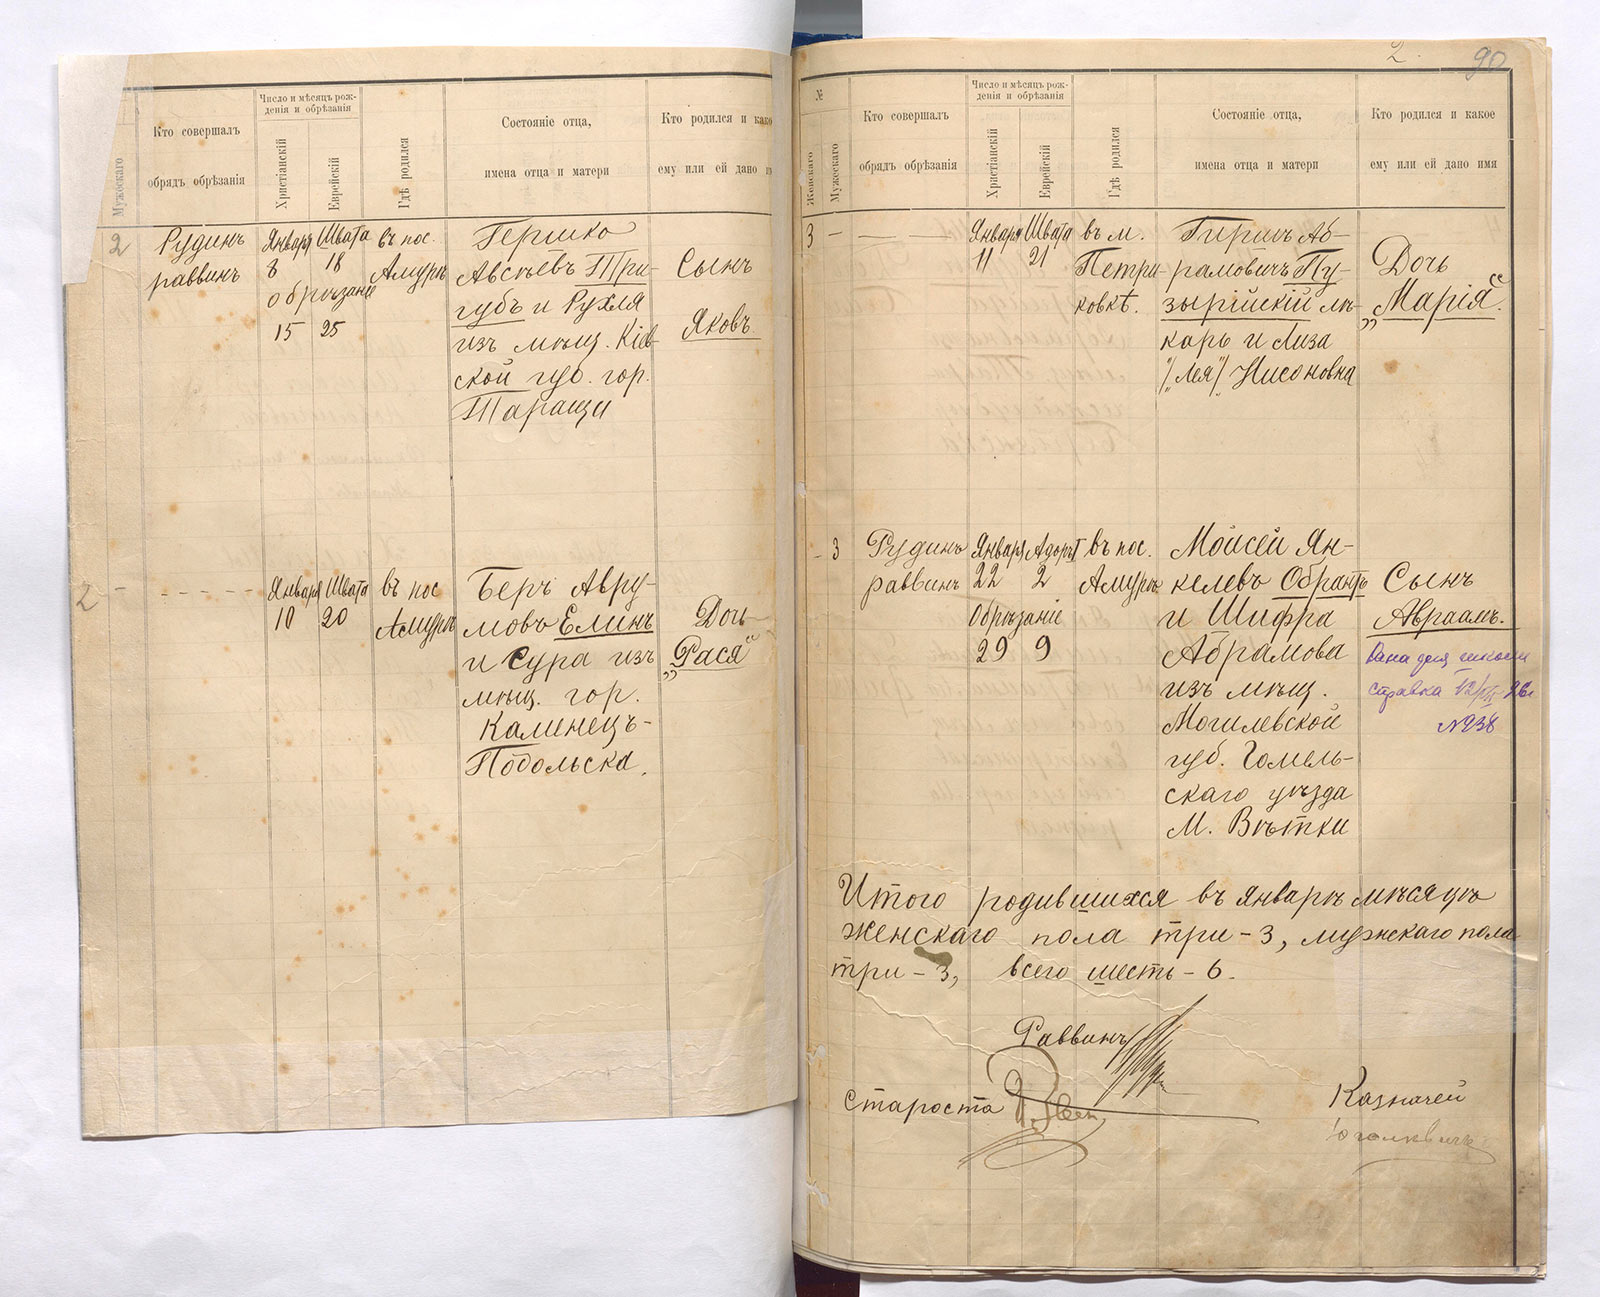 Мужескаго
Кто совершалъ
обрядъ обрѣзанія
Число и мѣсяцъ рож-
денія и обрѣзанія
Христіанскій
Еврейскій
Гдѣ родился
Состояніе отца,
имена отца и матери
Кто родился и како
ему или ей дано и
2
Рудинъ
раввинъ
Январь
8
обрѣзаніе
15
Швата
18
25
въ пос.
Амуръ
Гершко
Авсѣевъ Три-
губъ и Рухля
изъ мѣщ. Кіев-
ской губ. гор.
Таращи
Сынъ
Яковъ.
2 -
- - - - -
Январь
10
Швата
20
въ пос
Амуръ
Беръ Авру-
мовъ Елинъ
и Сура изъ
мѣщ. гор.
Каменецъ-
Подольска.
Дочь-
„Рася“
2.
90
№
Женскаго
Мужескаго
Кто совершалъ
обрядъ обрѣзанія
Число и мѣсяцъ рож-
денія и обрѣзанія
Христіанскій
Еврейскій
Гдѣ родился
Состояніе отца,
имена отца и матери
Кто родился и какое
ему или ей дано имя
3 -
Январь
11
Швата
21
въ м.
Петри-
ковкѣ.
Гиршъ Аб-
рамовичъ Пу-
зырійскій лѣ-
карь и Лиза
/„Лея“/ Нисоновна
Дочь
„Марія“.
- 3
Рудинъ
раввинъ
Январь
22
Обрѣзаніе
29
Адоръ I
2
9
въ пос.
Амуръ
Мойсей Ян-
келевъ Обрантъ
и Шифра
Абрамова
изъ мѣщ.
Могилевской
губ. Гомель-
скаго уѣзда
М. Вѣтки
Сынъ
Авраамъ.
Дана для школы
справка
№938
Итого родившихся въ январѣ мѣсяцѣ
женскаго пола три - 3, мужскаго пола
три - 3, всего шесть - 6.
Раввинъ
Староста
Казначей